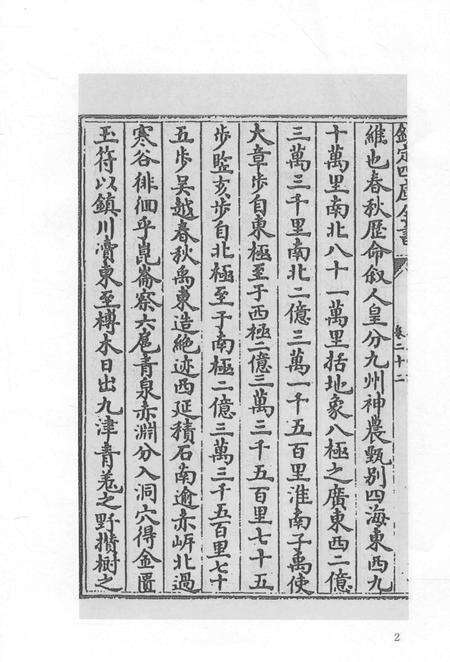 欽定四庫全書
卷二十二
維也春秋歴命叙人皇分九州神農甄别四海東西九
十萬里南北八十一萬里括地象八極之廣東西二億
三萬三千里南北二億三萬一千五百里淮南子禹使
大章歩自東極至于西極二億三萬三千五百里七十五
歩監亥歩自北極至于南極二億三萬三千五百里七十
五歩吳越春秋禹東造絶迹西延積石南逾赤岍北過
寒谷徘徊乎崑崙察六扈青泉赤淵分入洞穴得金匱
玉符以鎮川瀆東至榑木日出九津青羌之野攢樹之
2